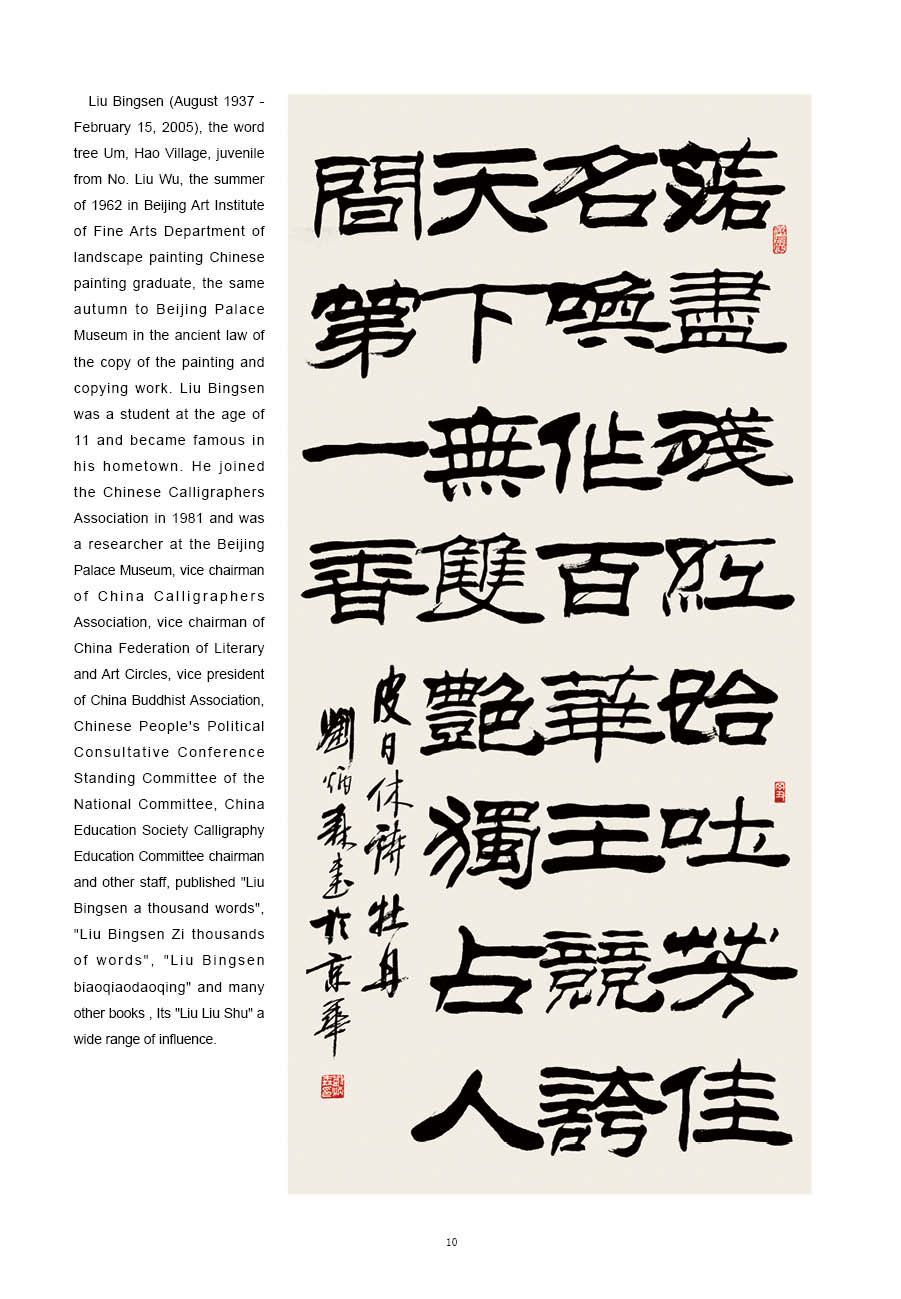 Liu Bingsen (August 1937 -
February 15, 2005), the word
tree Um, Hao Village, juvenile
from No. Liu Wu, the summer
of 1962 in Beijing Art Institute
of Fine Arts Department of
landscape painting Chinese
painting graduate, the same
autumn to Beijing Palace
Museum in the ancient law of
the copy of the painting and
copying work. Liu Bingsen
was a student at the age of
11 and became famous in
his hometown. He joined
the Chinese Calligraphers
Association in 1981 and was
a researcher at the Beijing
Palace Museum, vice chairman
of China Calligraphers
Association, vice chairman of
China Federation of Literary
and Art Circles, vice president
of China Buddhist Association,
Chinese People's Political
Consultative Conference
Standing Committee of the
National Committee, China
Education Society Calligraphy
Education Committee chairman
and other staff, published "Liu
Bingsen a thousand words",
"Liu Bingsen Zi thousands
of words", "Liu Bingsen
biaoqiaodaoqing" and many
other books , Its "Liu Liu Shu" a
wide range of influence.
落盡殘紅始吐芳佳
名喚作百華王競誇
天下無雙艷獨占人
間第一香
皮日休詩牡丹
劉炳森書於京華
10